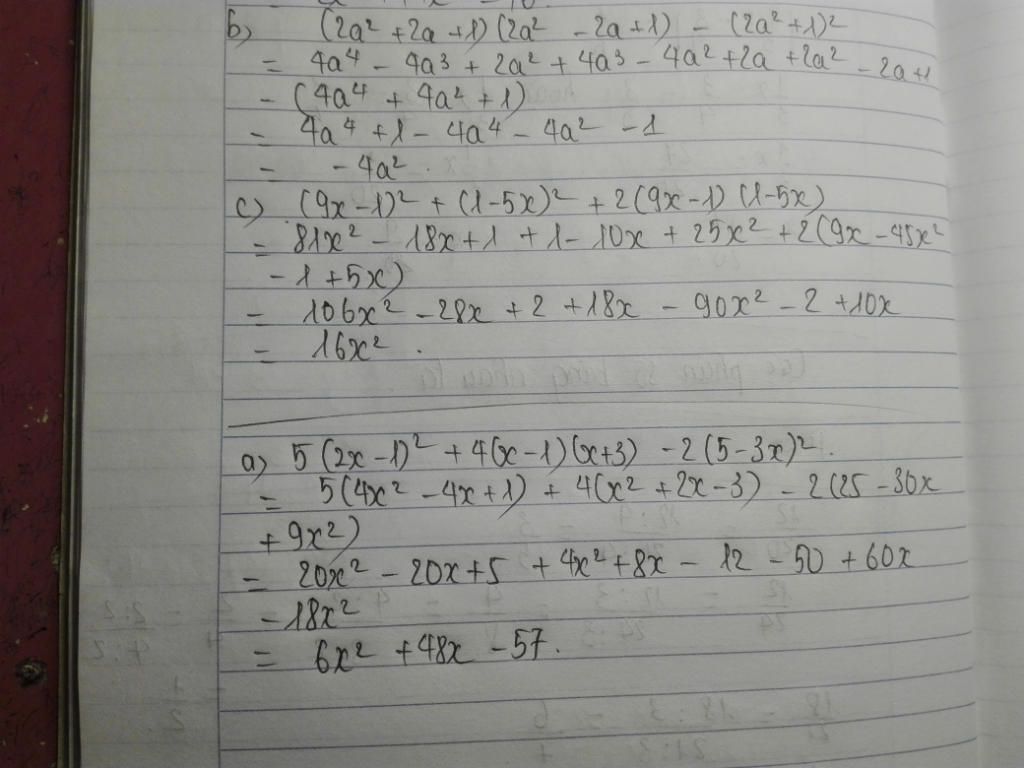 b) (2a² + 2a + 1)(2a² - 2a + 1) - (2a² + 1)²
= 4a⁴ - 4a³ + 2a² + 4a³ - 4a² + 2a + 2a² - 2a + 1
- (4a⁴ + 4a² + 1)
= 4a⁴ + 1 - 4a⁴ - 4a² - 1
= - 4a².
c) (9x - 1)² + (1 - 5x)² + 2(9x - 1)(1 - 5x)
= 81x² - 18x + 1 + 1 - 10x + 25x² + 2(9x - 45x²
- 1 + 5x)
= 106x² - 28x + 2 + 18x - 90x² - 2 + 10x
= 16x².
a) 5(2x - 1)² + 4(x - 1)(x + 3) - 2(5 - 3x)².
= 5(4x² - 4x + 1) + 4(x² + 2x - 3) - 2(25 - 30x
+ 9x²)
= 20x² - 20x + 5 + 4x² + 8x - 12 - 50 + 60x
- 18x²
= 6x² + 48x - 57.